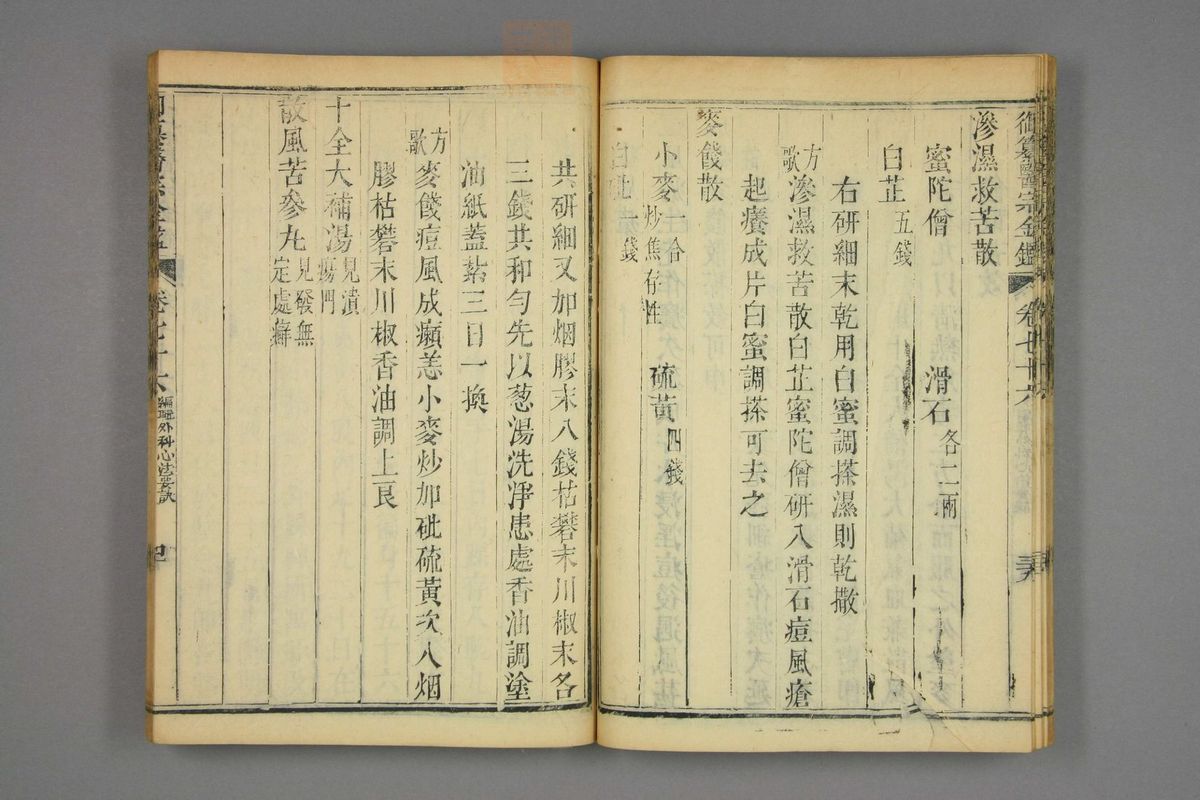 御纂醫宗金鑑 卷七十六
滲濕救苦散
蜜陀僧 滑石各二兩
白芷五錢
右研細末乾用白蜜調搽濕則乾撒
方歌 滲濕救苦散白芷蜜陀僧研入滑石痘風瘡
起癢成片白蜜調搽可去之
麥餞散
小麥一合炒焦存性 硫黃四錢
白砒一錢
共研細又加烟膠末八錢枯礬末川椒末各
三錢共和勻先以葱湯洗淨患處香油調塗
油紙蓋紥三日一換
方歌 麥餞痘風成癩恙小麥炒加砒硫黃次入烟
膠枯礬末川椒香油調上良
十全大補湯見潰瘍門
散風苦參丸見發無定處癬
卷七十六 編輯外科心法要訣